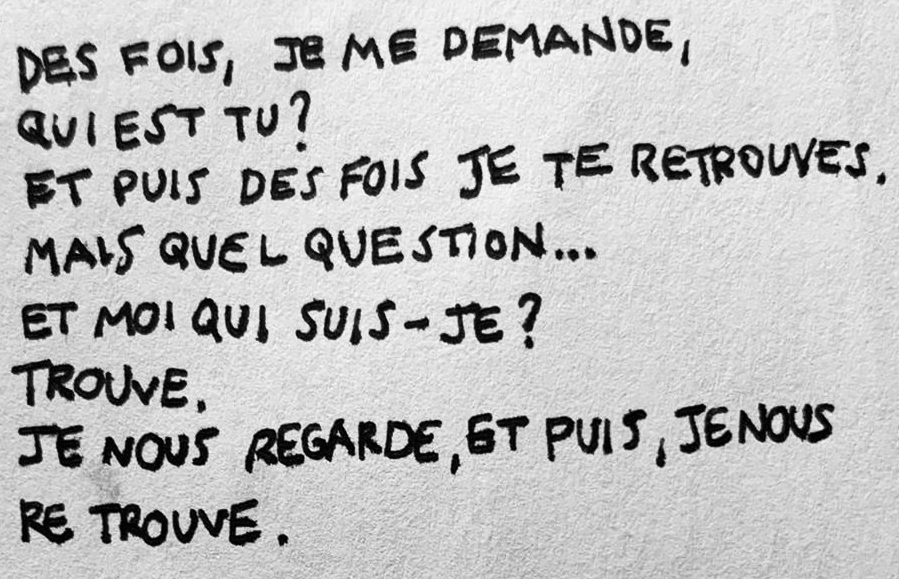 DES FOIS, JE ME DEMANDE,
QUI EST TU?
ET PUIS DES FOIS JE TE RETROUVES.
MAIS QUEL QUESTION...
ET MOI QUI SUIS-JE?
TROUVE.
JE NOUS REGARDE, ET PUIS, JE NOUS
RE TROUVE.